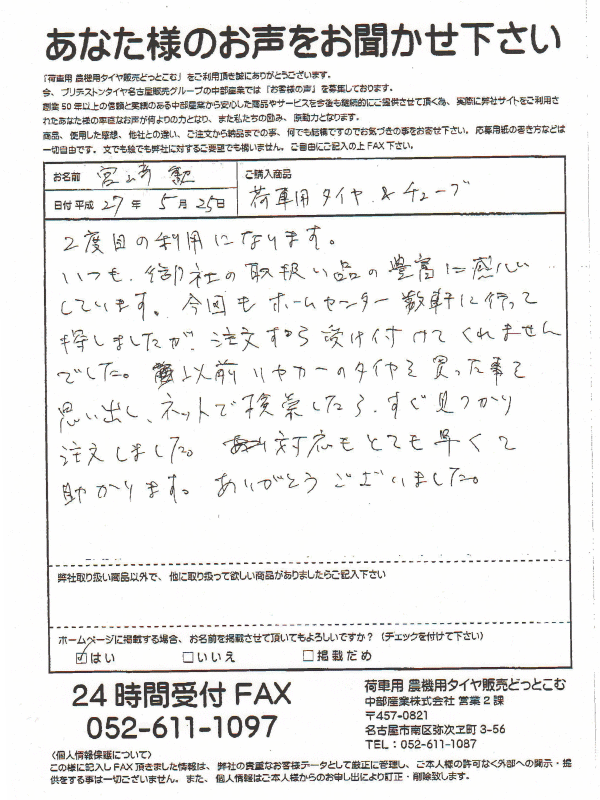 あなた様のお声をお聞かせ下さい
『荷車用 農機用タイヤ販売どっとこむ』をご利用頂き誠にありがとうございます。
今、ブリヂストンタイヤ名古屋販売グループの中部産業では『お客様の声』を募集しております。
創業50年以上の信頼と実績のある中部産業から安心した商品やサービスを今後も継続的にご提供させて頂く為、実際に弊社サイトをご利用さ
れたあなた様の率直なお声が何よりの力となり、また私たちの励み、原動力となります。
商品、使用した感想、他社との違い、ご注文から納品までの事、何でも結構ですのでお気づきの事をお寄せ下さい。応募用紙の書き方などは
一切自由です。文でも絵でも弊社に対するご要望でも構いません。ご自由にご記入の上FAX下さい。
お名前 宮崎 勲
ご購入商品
日付 平成 27 年 5 月 25 日
荷車用タイヤ & チューブ
2度目の利用になります。
いつも、御社の取扱い品の豊富に感心
しています。今回もホームセンター数軒に行って
探しましたが、注文すら受け付けてくれません
でした。以前リヤカーのタイヤを買った事を
思い出し、ネットで検索したら、すぐ見つかり
注文しました。対応もとても早くて
助かります。ありがとうございました。
弊社取り扱い商品以外で、他に取り扱って欲しい商品がありましたらご記入下さい
ホームページに掲載する場合、お名前を掲載させて頂いてもよろしいですか?(チェックを付けて下さい)
☑はい □いいえ □掲載だめ
24時間受付FAX
052-611-1097
荷車用 農機用タイヤ販売どっとこむ
中部産業株式会社 営業2課
〒457-0821
名古屋市南区弥次ヱ町3-56
TEL:052-611-1087
〈個人情報保護について〉
この様に記入しFAX頂きました情報は、弊社の貴重なお客様データとして厳正に管理し、ご本人様の許可なく外部への開示・提
供をする事は一切ございません。また、個人情報はご本人様からのお申し出により訂正・削除致します。